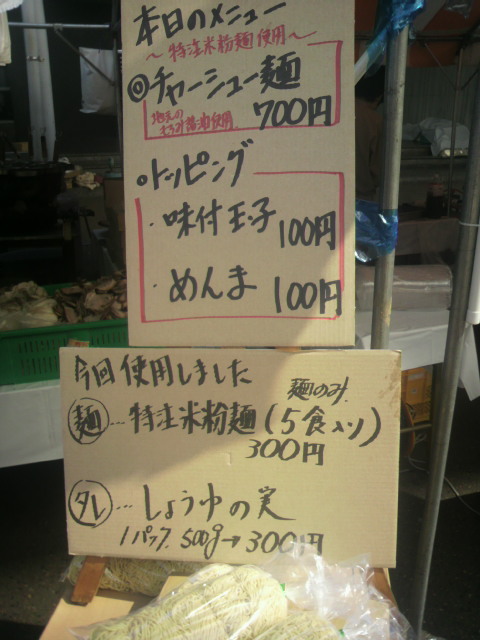 本日のメニュー
～特注米粉麺使用～
◎チャーシュー麺
地元のもろみ醤油使用 700円
○トッピング
・味付玉子 100円
・めんま 100円
今回使用しました
麺のみ
麺…特注米粉麺(5食入り)
300円
タレ…しょうゆの実
1パック 500g→300円